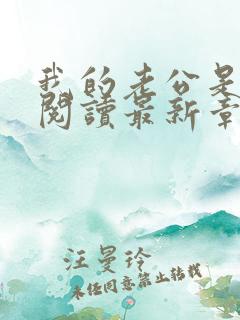 我的老公是
閱讀最新章
汪曼玲
未经同意禁止转载